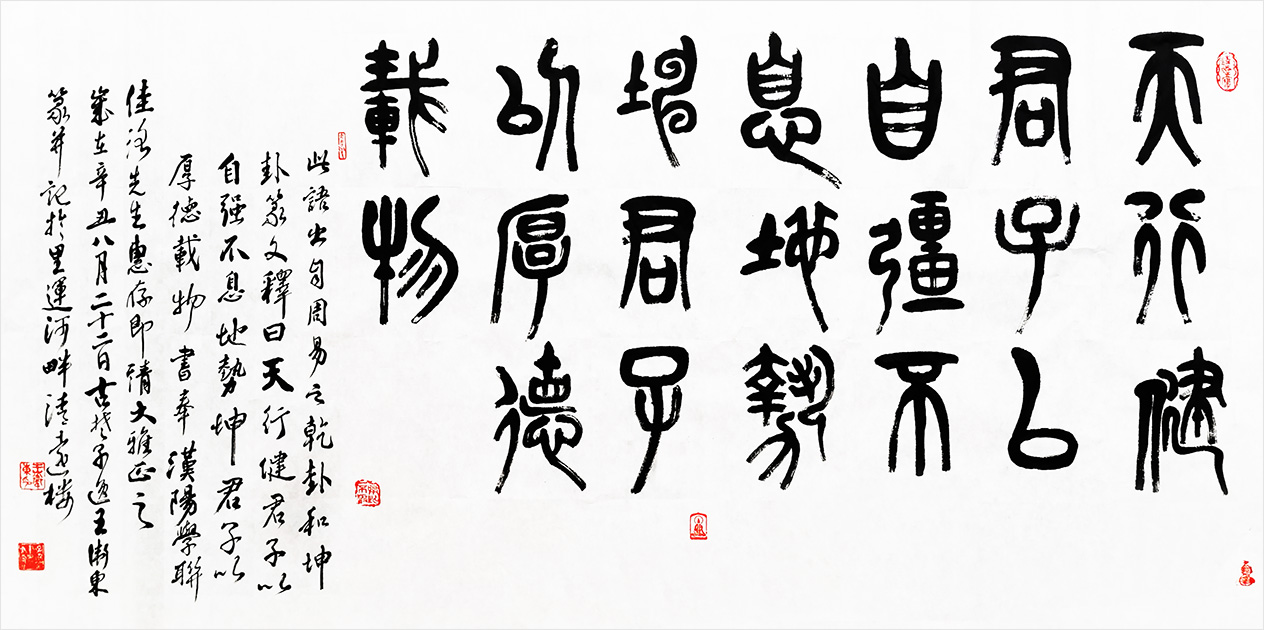 天行健
君子㠯
自彊不
息地勢
坤君子
以厚德
載物
此語出自周易之乾卦和坤
卦篆文釋曰天行健君子以
自强不息地勢坤君子以
厚德載物書奉漢陽學聯
佳先生惠存即請大雅正之
歲在辛丑八月二十二日古楚子逸王衛東
篆并記於里運河畔清遠楼